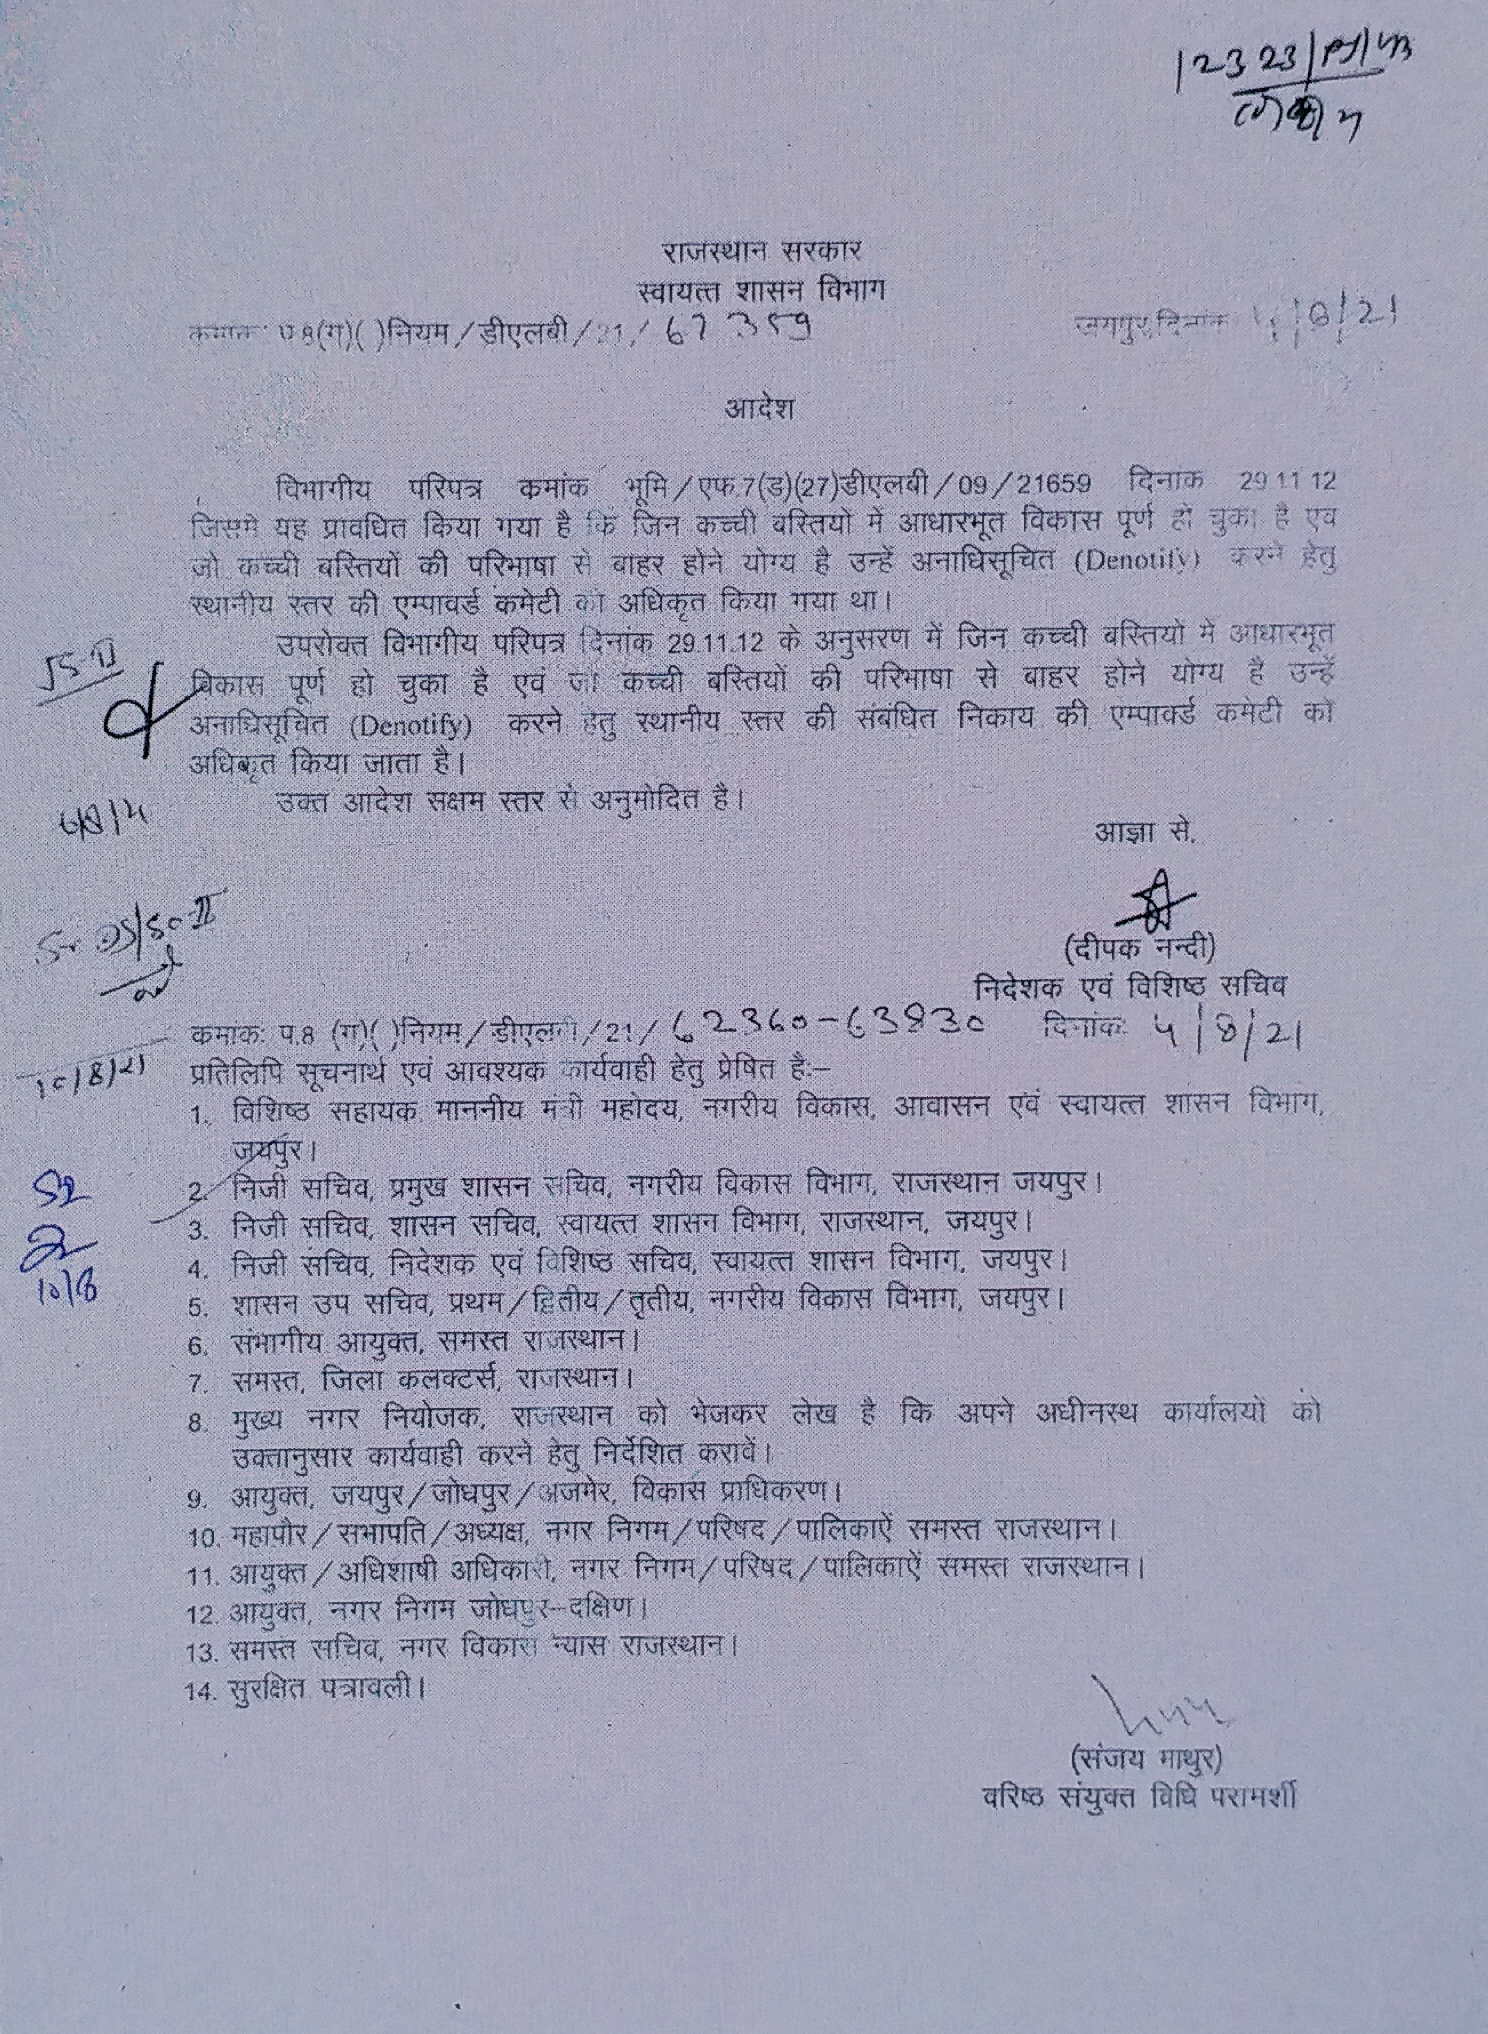 12323
राजस्थान सरकार
स्वायत्त शासन विभाग
क्रमांकः प.8(ग)( )नियम/डीएलबी/21/ 62359 जयपुर,दिनांक 4/8/21
आदेश
विभागीय परिपत्र कमांक भूमि/एफ.7(ड)(27)डीएलबी/09/21659 दिनांक 29.11.12
जिसमें यह प्रावधित किया गया है कि जिन कच्ची बस्तियों में आधारभूत विकास पूर्ण हो चुका है एवं
जो कच्ची बस्तियों की परिभाषा से बाहर होने योग्य है उन्हें अनाधिसूचित (Denotify) करने हेतु
स्थानीय स्तर की एम्पावर्ड कमेटी को अधिकृत किया गया था।
उपरोक्त विभागीय परिपत्र दिनांक 29.11.12 के अनुसरण में जिन कच्ची बस्तियों में आधारभूत
विकास पूर्ण हो चुका है एवं जो कच्ची बस्तियों की परिभाषा से बाहर होने योग्य है उन्हें
अनाधिसूचित (Denotify) करने हेतु स्थानीय स्तर की संबंधित निकाय की एम्पावर्ड कमेटी को
अधिकृत किया जाता है।
उक्त आदेश सक्षम स्तर से अनुमोदित है।
आज्ञा से,
(दीपक नन्दी)
निदेशक एवं विशिष्ठ सचिव
कमांकः प.8 (ग)( )नियम/डीएलबी/21/ 62360-63830 दिनांकः 4/8/21
10/8/21
प्रतिलिपि सूचनार्थ एवं आवश्यक कार्यवाही हेतु प्रेषित है:–
1. विशिष्ठ सहायक माननीय मंत्री महोदय, नगरीय विकास, आवासन एवं स्वायत्त शासन विभाग,
जयपुर।
2. निजी सचिव, प्रमुख शासन सचिव, नगरीय विकास विभाग, राजस्थान जयपुर।
3. निजी सचिव, शासन सचिव, स्वायत्त शासन विभाग, राजस्थान, जयपुर।
4. निजी सचिव, निदेशक एवं विशिष्ठ सचिव, स्वायत्त शासन विभाग, जयपुर।
10/8
5. शासन उप सचिव, प्रथम/द्वितीय/तृतीय, नगरीय विकास विभाग, जयपुर।
6. संभागीय आयुक्त, समस्त राजस्थान।
7. समस्त, जिला कलक्टर्स, राजस्थान।
8. मुख्य नगर नियोजक, राजस्थान को भेजकर लेख है कि अपने अधीनस्थ कार्यालयों को
उक्तानुसार कार्यवाही करने हेतु निर्देशित करावें।
9. आयुक्त, जयपुर/जोधपुर/अजमेर, विकास प्राधिकरण।
10. महापौर/सभापति/अध्यक्ष, नगर निगम/परिषद/पालिकाऐं समस्त राजस्थान।
11. आयुक्त/अधिशाषी अधिकारी, नगर निगम/परिषद/पालिकाऐं समस्त राजस्थान।
12. आयुक्त, नगर निगम जोधपुर–दक्षिण।
13. समस्त सचिव, नगर विकास न्यास राजस्थान।
14. सुरक्षित पत्रावली।
(संजय माथुर)
वरिष्ठ संयुक्त विधि परामर्शी